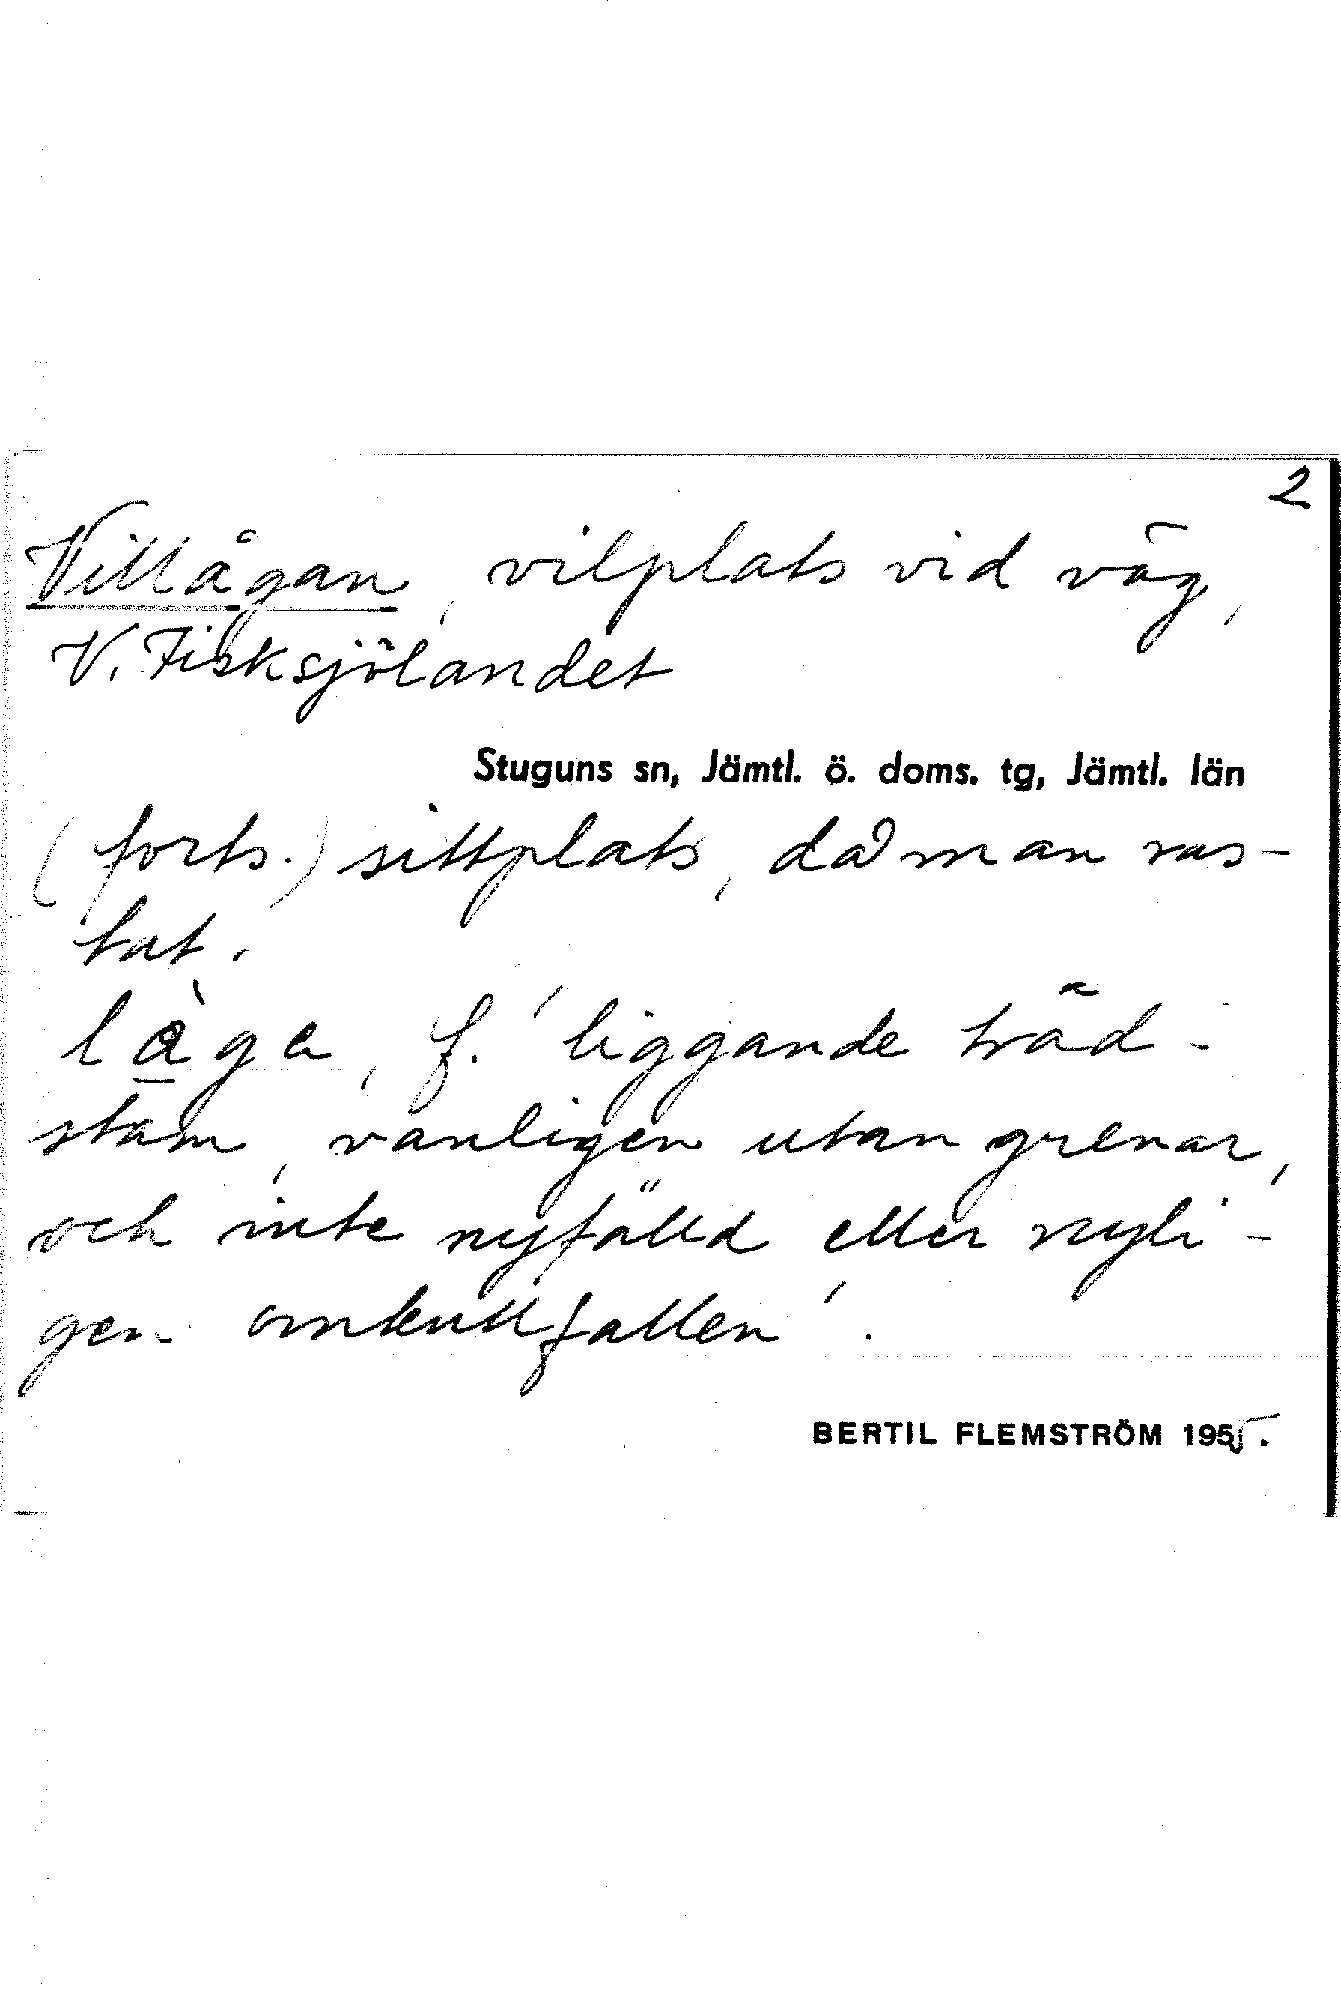 2
Villågan, vilplats vid väg,
V. Fisksjölandet
Stuguns sn, Jämtl. ö. doms. tg, Jämtl. län
(forts.) sittplats, då man ras-
tat.
làga, f. 'liggande träd-
stam, vanligen utan grenar,
och inte nyfälld eller nyli-
gen omkullfallen'.
BERTIL FLEMSTRÖM 1955.